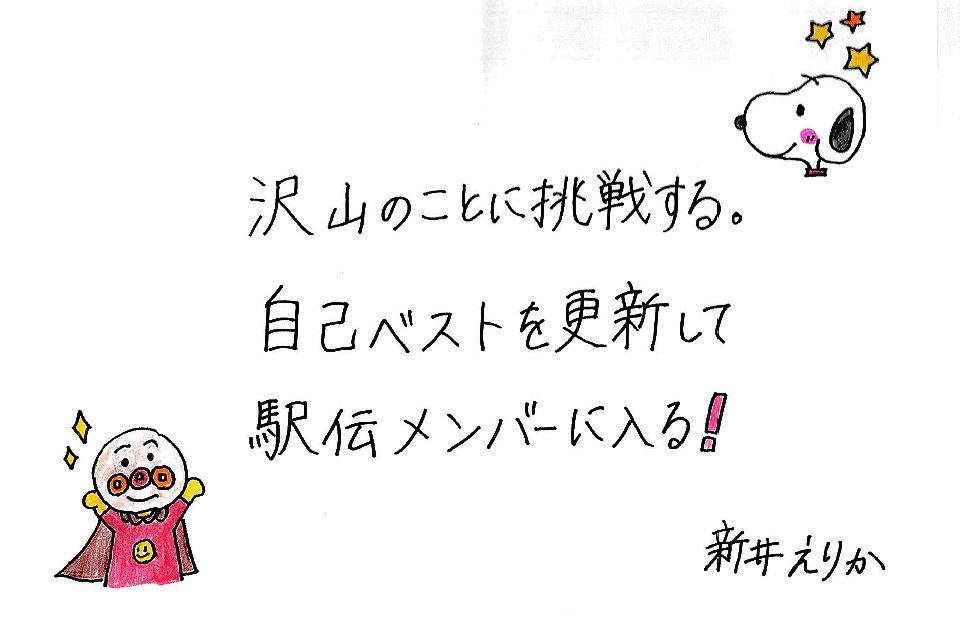 沢山のことに挑戦する。
自己ベストを更新して
駅伝メンバーに入る!
新井えりか